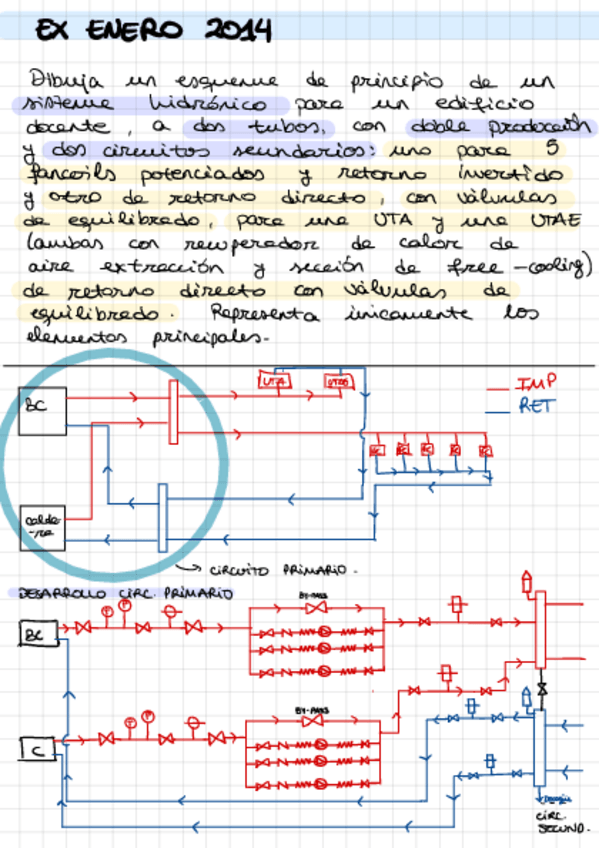 EX ENERO 2014
Dibuja un esquema de principio de un
sistema hidrónico para un edificio
docente, a dos tubos, con doble producción
y dos circuitos secundarios: uno para 5
fancoils potenciados y retorno invertido
y otro de retorno directo, con válvulas
de equilibrado, para una UTA y una UTAE
(ambas con recuperador de calor de
aire extracción y sección de free-cooling)
de retorno directo con válvulas de
equilibrado. Representa únicamente los
elementos principales.
UTA
UTAE
IMP
RET
BC
calde-
ra
CIRCUITO PRIMARIO.
DESARROLLO CIRC. PRIMARIO
BY-PASS
BC
BY-PASS
C
CIRC.
SECUND.